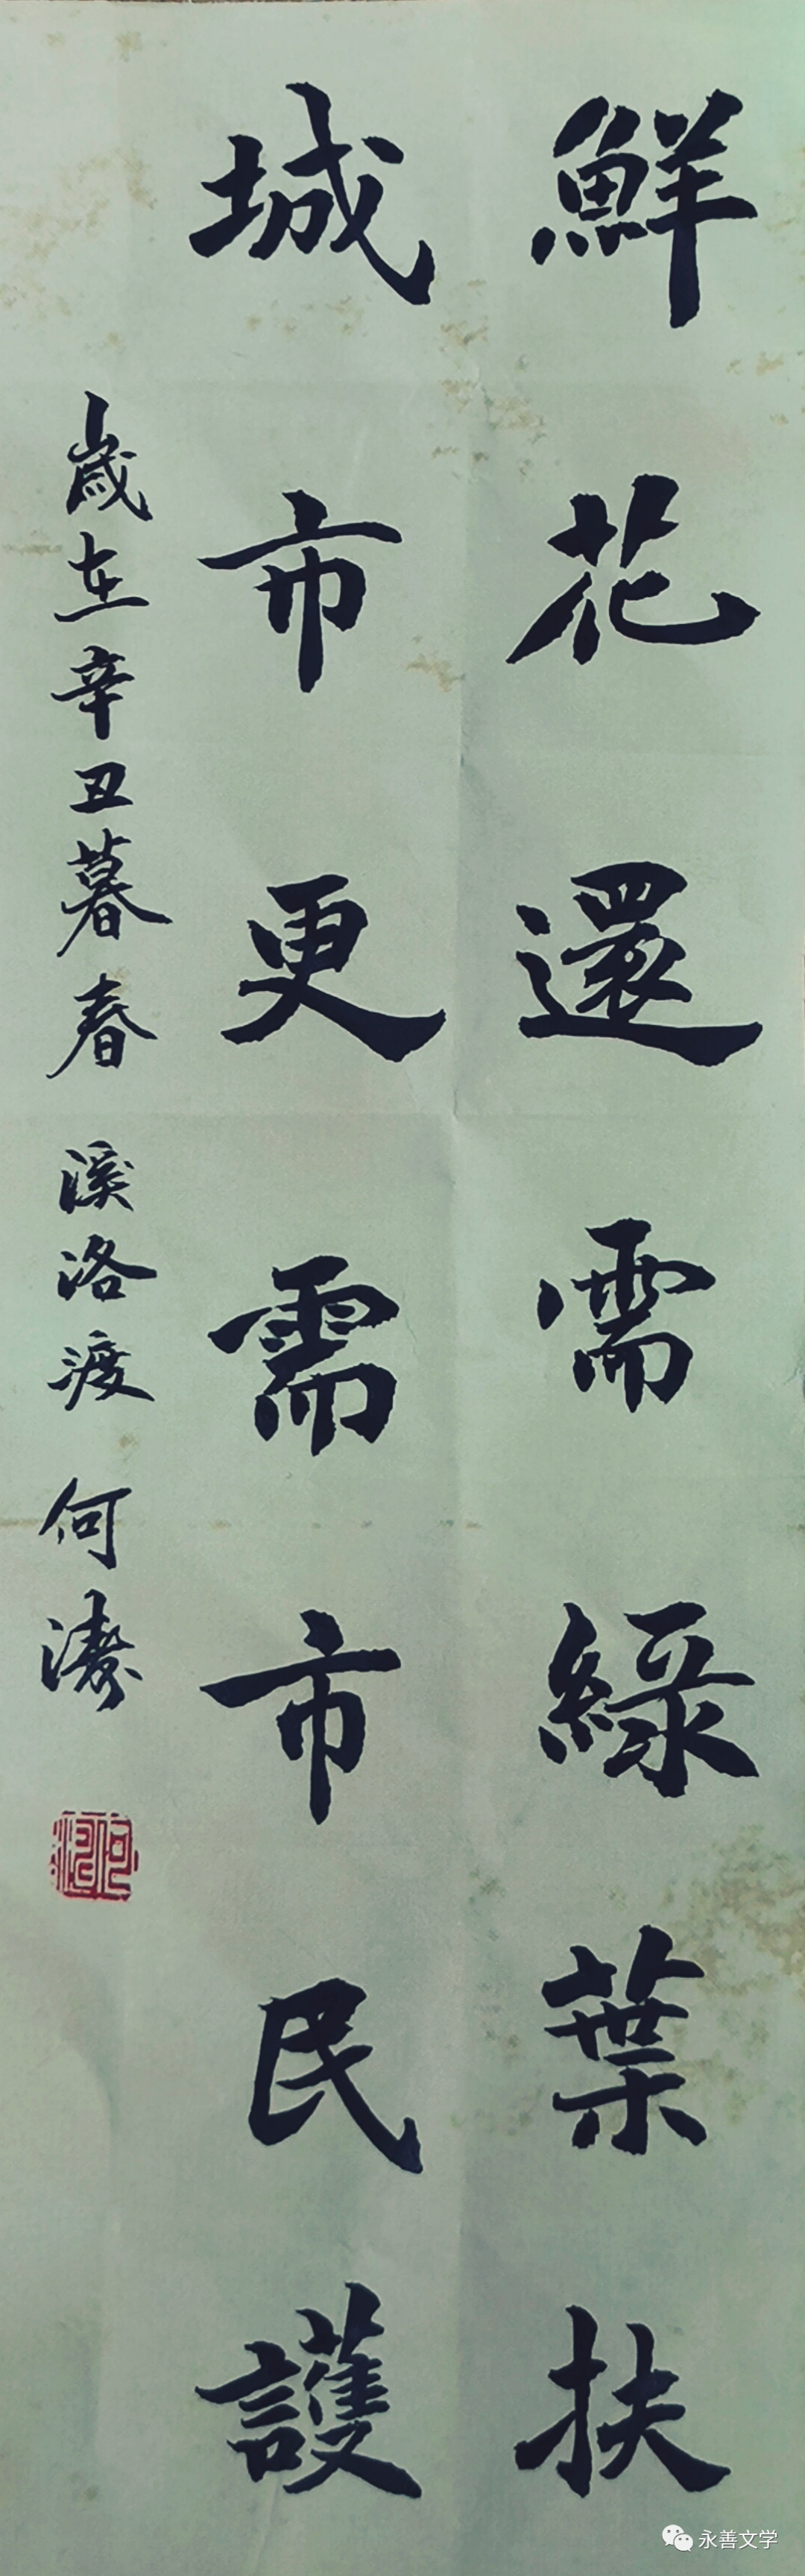 鮮花還需綠葉扶
城市更需市民護
歲在辛丑暮春 溪洛渡 何濤
何濤
永善文学